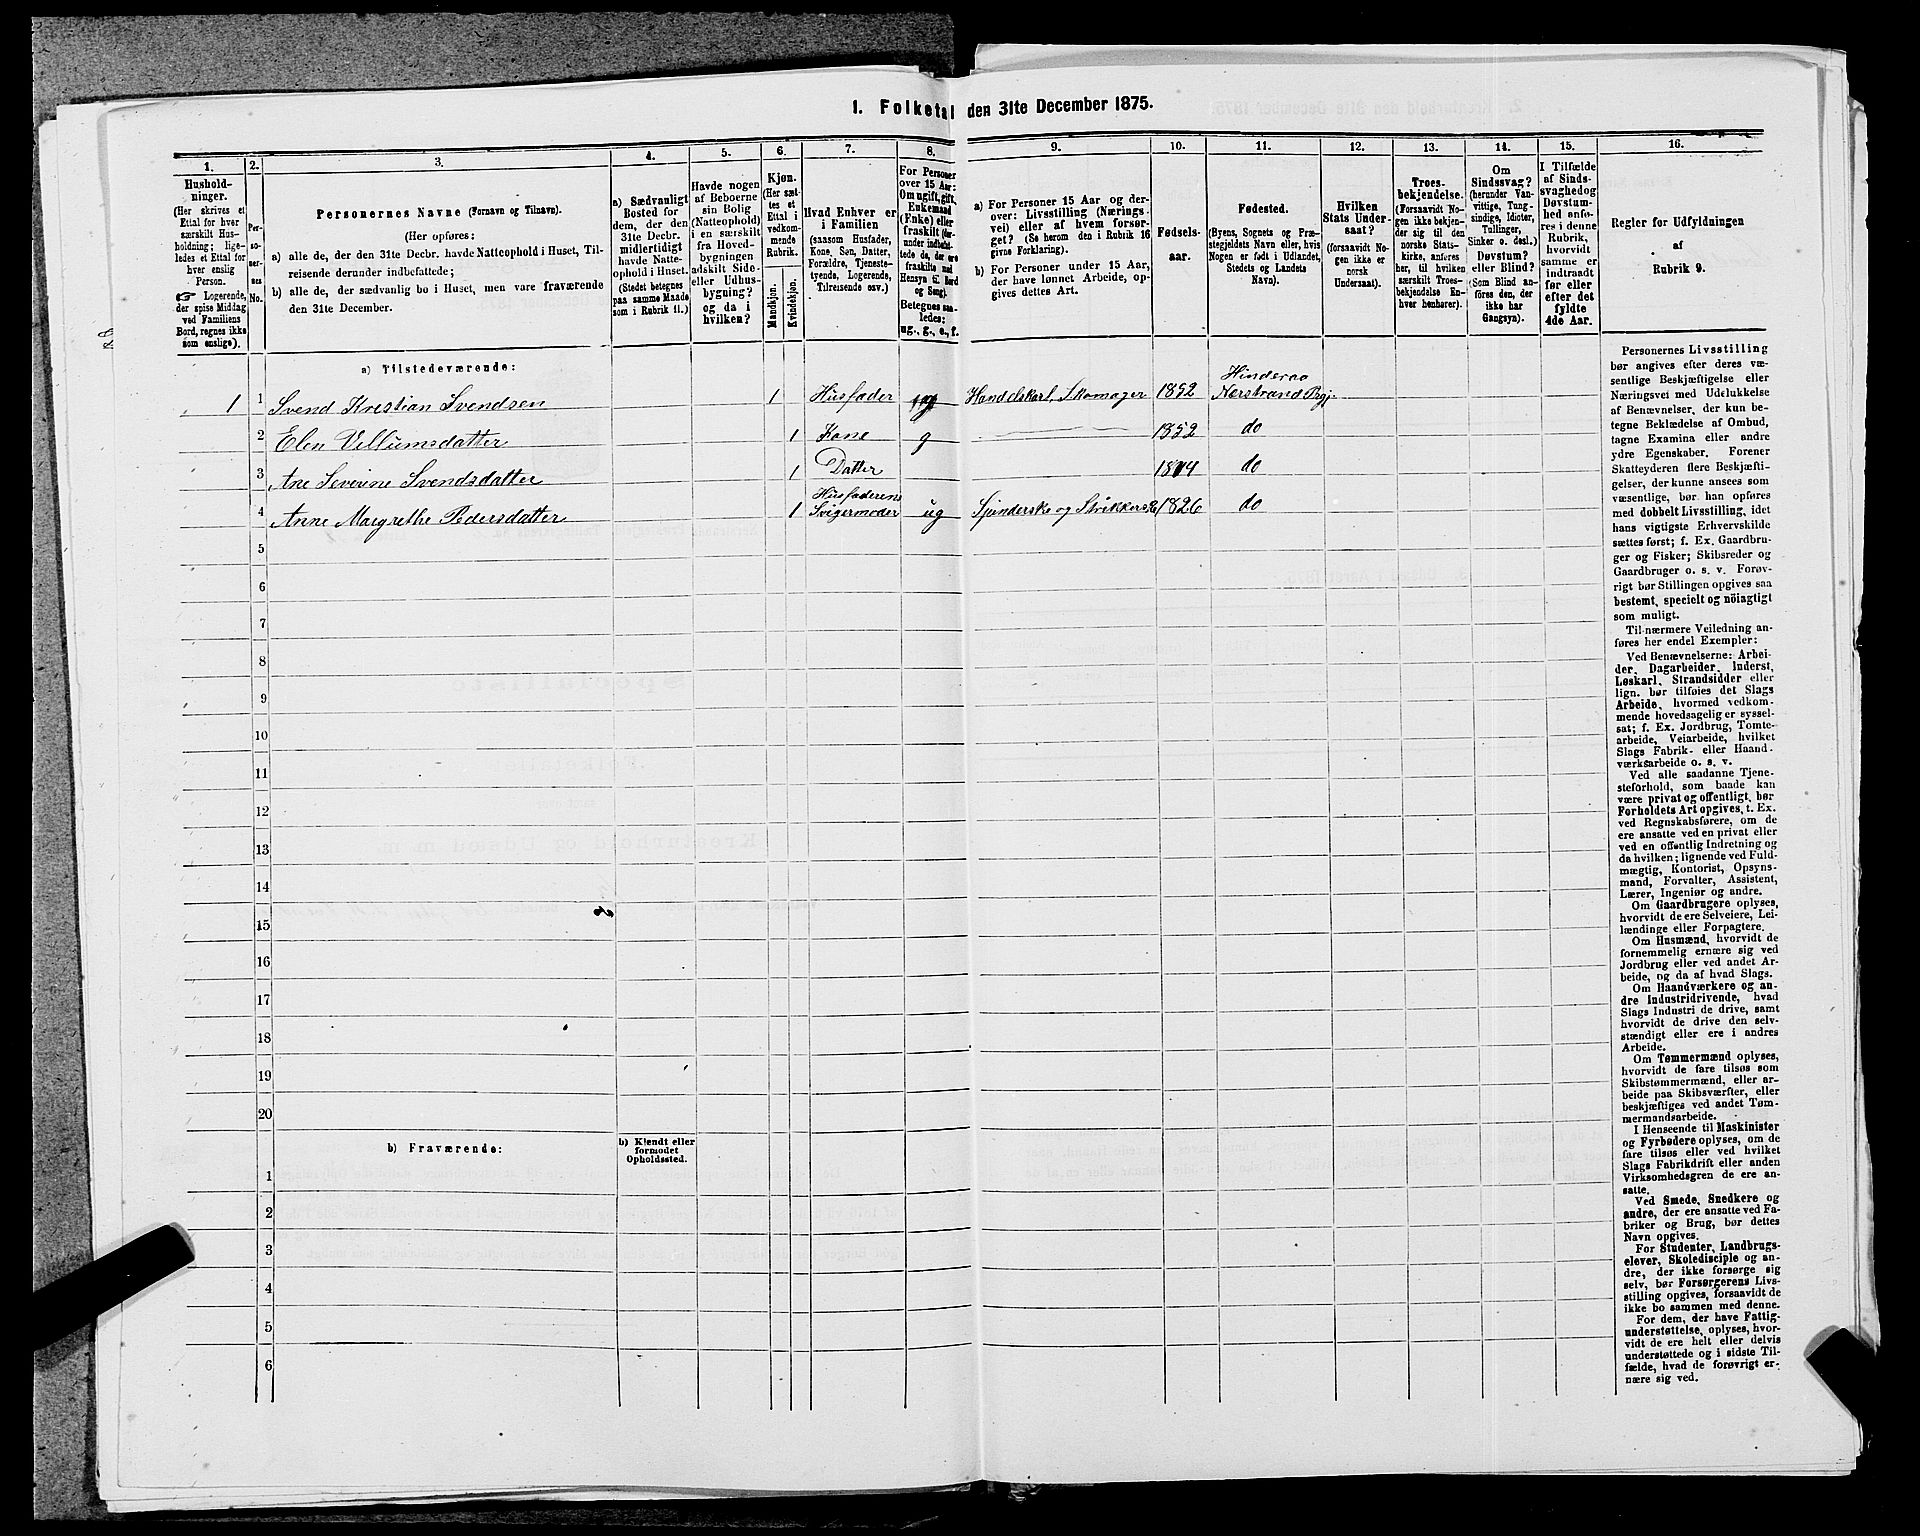 1. Folketal den 31te December 1875.
1. 2. 3. 4. 5. 6. 7. 8. 9. 10. 11. 12. 13. 14. 15. 16.
Hushold-
ninger.
(Her skrives et
Ettal for hver
særskilt Hus-
holdning; lige-
ledes et Ettal for
hver enslig
Person.
☞ Logerende,
der spise Middag
ved Familiens
Bord, regnes ikke
som enslige).
Per-
so-
ner-
nes
No.
Personernes Navne (Fornavn og Tilnavn).
(Her opføres:
a) alle de, der den 31te Decbr. havde Natteophold i Huset, Til-
reisende derunder indbefattede;
b) alle de, der sædvanlig bo i Huset, men vare fraværende
den 31te December.
a) Sædvanligt
Bosted for
dem, der den
31te Decbr.
midlertidigt
havde Natte-
ophold i Huset.
(Stedet betegnes
paa samme Maade
som i Rubrik 11.)
Havde nogen
af Beboerne
sin Bolig
(Natteophold)
i en særskilt
fra Hoved-
bygningen
adskilt Side-
eller Udhus-
bygning?
og da i
hvilken?
Kjøn.
(Her sæt-
tes et
Ettal i
vedkom-
mende
Rubrik.
Mandkjøn.
Kvindekjøn.
Hvad Enhver er
i Familien
(saasom Husfader,
Kone, Søn, Datter,
Forældre, Tjeneste-
tyende, Logerende,
Tilreisende osv.)
For Personer
over 15 Aar:
Om ugift, gift,
Enkemand
(Enke) eller
fraskilt (her-
under indbefat-
tede da, der ere
fraskilte med
Hensyn til Bord
og Seng).
Betegnes saa-
ledes:
ug., g., e., f.
a) For Personer 15 Aar og der-
over: Livsstilling (Nærings-
vei) eller af hvem forsør-
get? (Se herom den i Rubrik 16
givne Forklaring).
b) For Personer under 15 Aar,
der have lønnet Arbeide, op-
gives dettes Art.
Fødsels-
aar.
Fødested.
(Byens, Sognets og Præ-
stegjeldets Navn eller, hvis
Nogen er født i Udlandet,
Stedets og Landets
Navn).
Hvilken
Stats Under-
saat?
(forsaavidt No-
gen ikke er
norsk
Undersaat).
Troes-
bekjendelse.
(Forsaavidt No-
gen ikke bekjen-
der sig til den
norske Stats-
kirke, anføres
her, til hvilken
særskilt Troes-
bekjendelse En-
hver henhører).
Om
Sindssvag?
(herunder Van-
vittige, Tung-
sindige, Idioter,
Tullinger,
Sinker o. desl.)
Døvstum?
eller Blind?
(Som Blind an-
føres den, der
ikke har
Gangsyn).
I Tilfælde
af Sinds-
svaghed og
Døvstum-
hed anfø-
res i denne
Rubrik,
hvorvidt
samme er
indtraadt
før eller
efter det
fyldte
4de Aar.
Regler for Udfyldningen
af
Rubrik 9.
a) Tilstedeværende:
1 1 Svend Kristian Svendsen 1 Husfader g Handelskarl, Skomager 1852 Hinderaa
Nærstrand Prgj.
2 Elen Villumsdatter 1 Kone g 1852 do
3 Ane Severine Svendsdatter 1 Datter 1874 do
4 Anne Margrethe Pedersdatter 1 Husfaderens
Svigermoder ug Spinderske og Strikkerske 1826 do
5
6
7
8
9
10
11
12
13
14
15
16
17
18
19
20
b) Fraværende:
b) Kjendt eller
formodet
Opholdssted.
1
2
3
4
5
6
Personernes Livsstilling
bør angives efter deres væ-
sentlige Beskjæftigelse eller
Næringsvei med Udelukkelse
af Benævnelser, der kun be-
tegne Beklædelse af Ombud,
tagne Examina eller andre
ydre Egenskaber. Forener
Skatteyderen flere Beskjæfti-
gelser, der kunne ansees som
væsentlige, bør han opføres
med dobbelt Livsstilling, idet
hans vigtigste Erhvervskilde
sættes først; f. Ex. Gaardbru-
ger og Fisker; Skibsreder og
Gaardbruger o. s. v. Forøv-
rigt bør Stillingen opgives saa
bestemt, specielt og nöiagtigt
som muligt.
Til nærmere Veiledning an-
føres her endel Exempler:
Ved Benævnelserne: Arbei-
der, Dagarbeider, Inderst,
Løskarl, Strandsidder eller
lign. bør tilføies det Slags
Arbeide, hvormed vedkom-
mende hovedsagelig er syssel-
sat; f. Ex. Jordbrug, Tomte-
arbeide, Veiarbeide, hvilket
Slags Fabrik- eller Haand-
værksarbeide o. s. v.
Ved alle saadanne Tjene-
steforhold, som baade kan
være privat og offentligt, bør
Forholdets Art opgives, t. Ex.
ved Regnskabsførere, om de
ere ansatte ved en privat eller
ved en offentlig Indretning og
da hvilken; lignende ved Fuld-
mægtig, Kontorist, Opsyns-
mand, Forvalter, Assistent,
Lærer, Ingeniør og andre.
Om Gaardbrugere oplyses,
hvorvidt de ere Selveiere, Lei-
lændinge eller Forpagtere.
Om Husmænd, hvorvidt de
fornemmelig ernære sig ved
Jordbrug eller ved andet Ar-
beide, og da af hvad Slags.
Om Haandværkere og an-
dre Industridrivende, hvad
Slags Industri de drive, samt
hvorvidt de drive den selv-
stændigt eller ere i andres
Arbeide.
Om Tømmermænd oplyses,
hvorvidt de fare tilsøs som
Skibstømmermænd, eller ar-
beide paa Skibsværfter, eller
beskjæftiges ved andet Tøm-
mermandsarbeide.
I Henseende til Maskinister
og Fyrbødere oplyses, om de
fare tilsøs eller ved hvilket
Slags Fabrikdrift eller anden
Virksomhedsgren de ere an-
satte.
Ved Smede, Snedkere og
andre, der ere ansatte ved Fa-
briker og Brug, bør dettes
Navn opgives.
For Studenter, Landbrugs-
elever, Skoledisciple og an-
dre, der ikke forsørge sig
selv, bør Forsørgerens Livs-
stilling opgives, forsaavidt de
ikke bo sammen med denne.
For dem, der have Fattig-
understøttelse, oplyses, hvor-
vidt de ere helt eller delvis
understøttede og i sidste Til-
fælde, hvad de forøvrigt er-
nære sig ved.